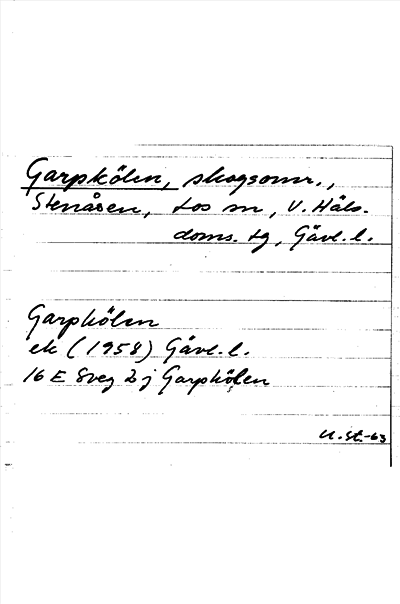 Garpkölen, skogsomr.,
Stenåsen, Los sn, V. Häls.
doms. tg, Gävl. l.
Garpkölen
ek (1958) Gävl. l.
16 E Sveg 2 j Garpkölen
U. St.-63